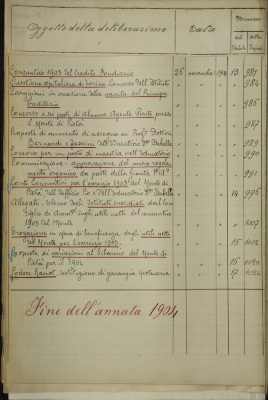 Oggetto della deliberazione Data Numero
del Verbale della Pagina
Consuntivo 1903 del Credito Fondiario 26 novembre 1904 13 981
Questione ospitaliera di Torino. Concorso dell'Istituto " " " 984
Elargizioni in occasione della nascita del Principe
ereditario " " " 986
Concorso a un posto di Alunno Agente Perito presso
il Monte di Pietà " " " 987
Proposte di aumento di assegno ai Prof. Dottori
Bernardi e Jassini dell'Educatorio Duchessa Isabella " " " 989
Concorso per un posto di maestra nell'Educatorio " " 990
Comunicazione di approvazione del nuovo
organico da parte della Giunta " " " 991
Conti Consuntivi per l'esercizio 1903 del Monte di
Pietà, dell'Ufficio Pio e dell'Educatorio Duchessa Isabella " " 14 996
Allegati, elenco degli Istituti sussidiati dal Con-
siglio di Amm. sugli utili netti del consuntivo
1903 del Monte " " " 1002
Erogazione in opere di beneficenza degli utili netti
del Monte per l'esercizio 1903 " " 15 1012
Proposte di variazioni al bilancio del Monte di
Pietà per il 1904 " " 16 1020
Poderi restituzione di garanzia ipotecaria " " 17 1024
Fine dell'annata 1904